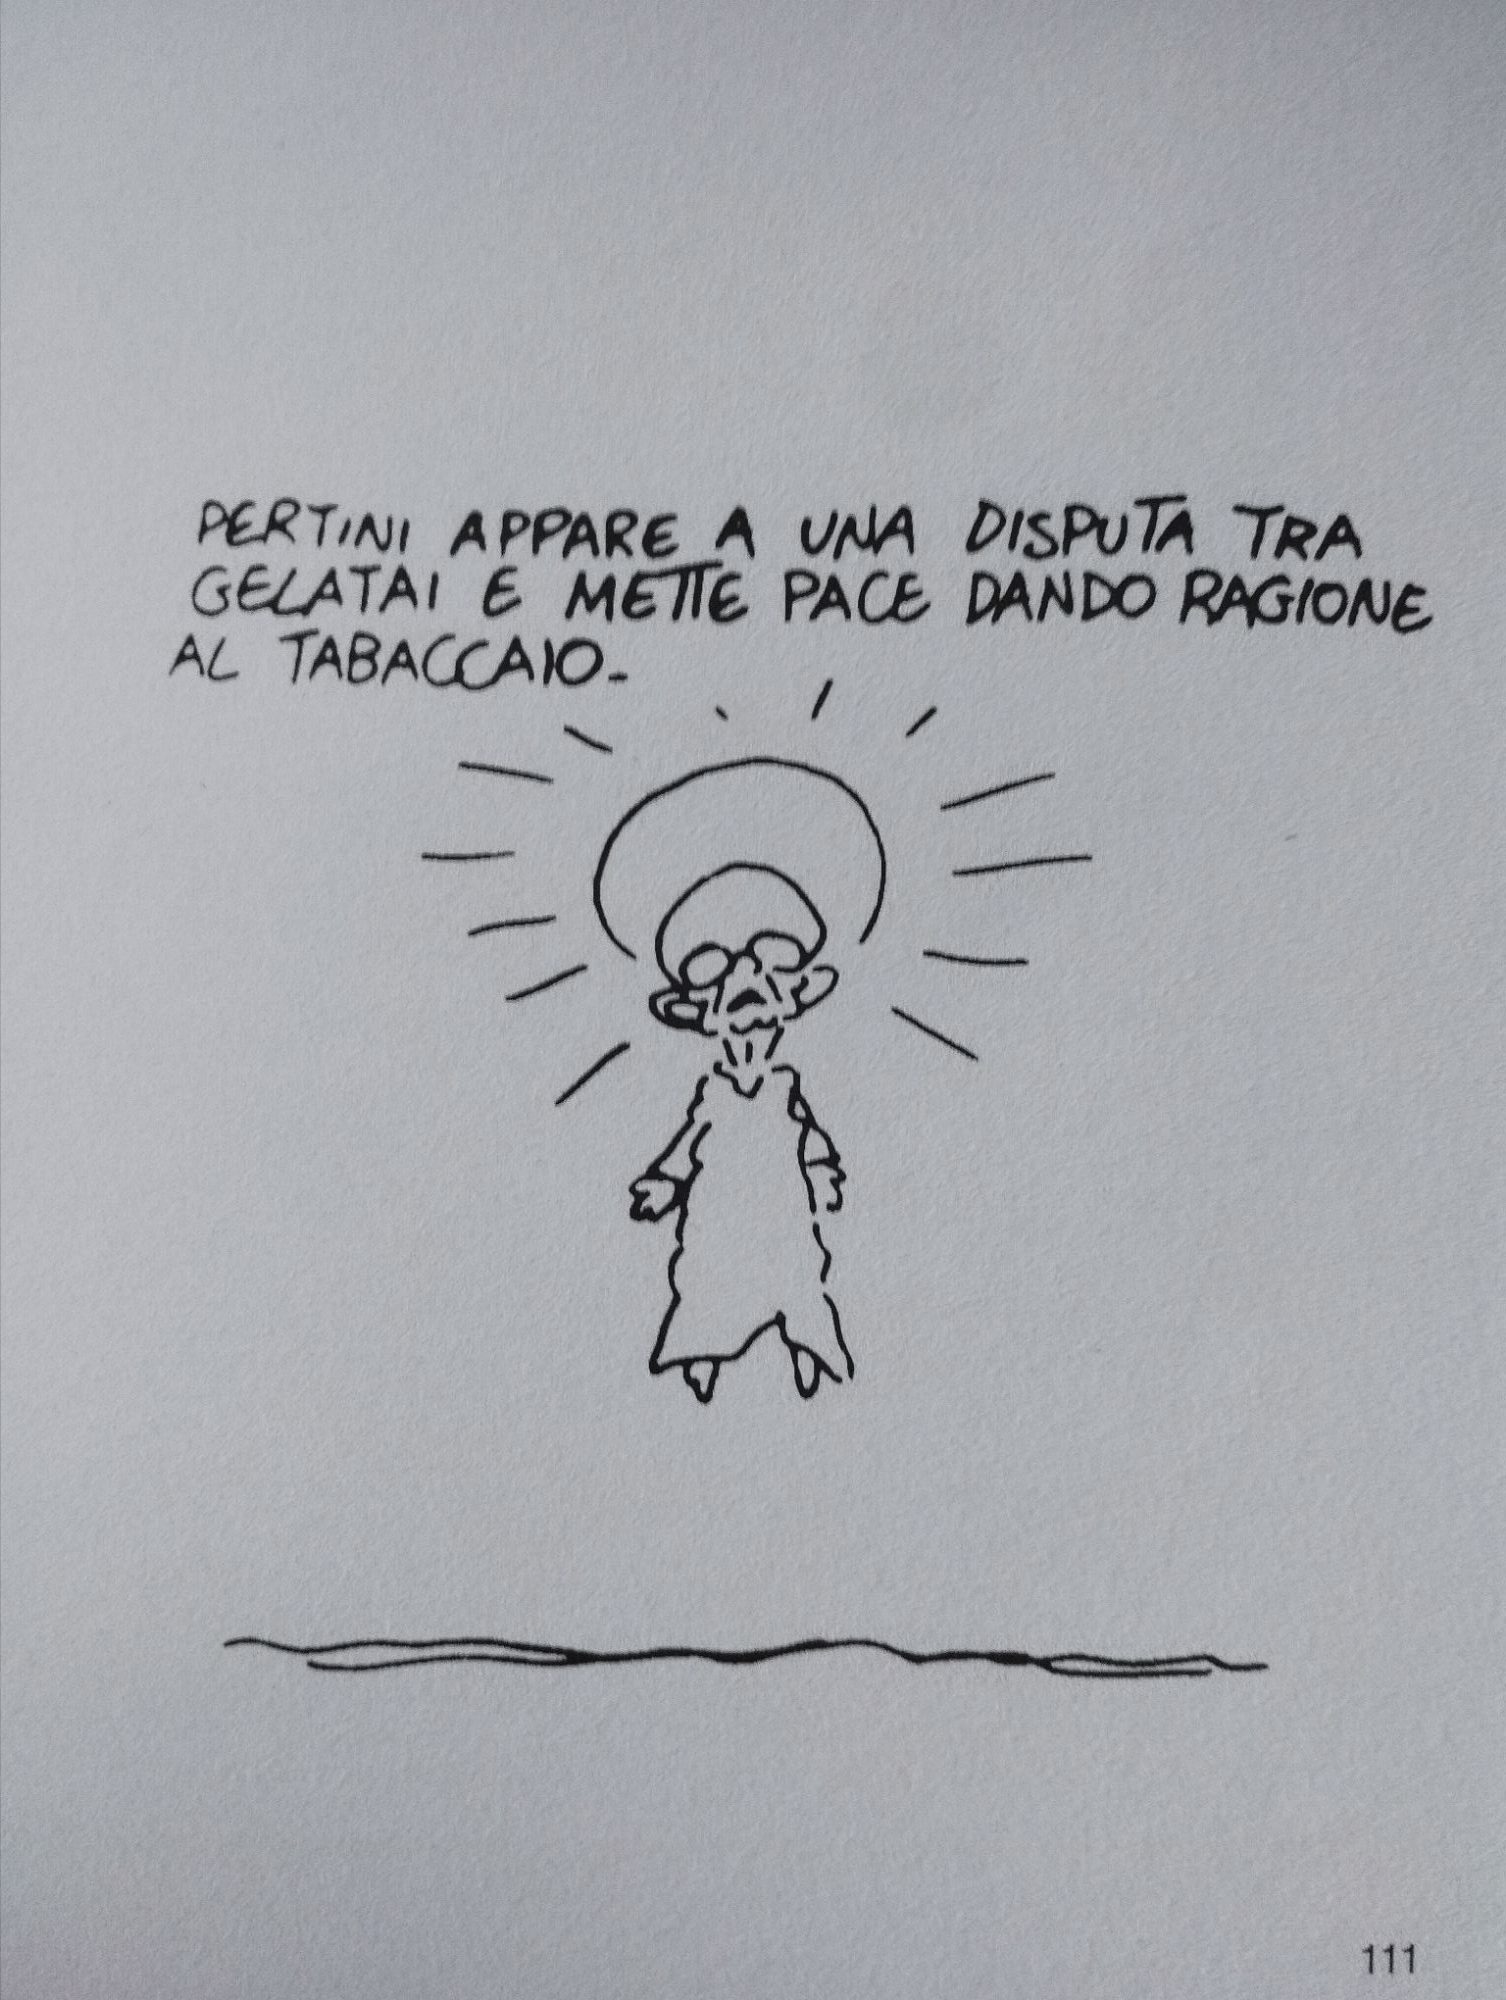 PERTINI APPARE A UNA DISPUTA TRA
GELATAI E METTE PACE DANDO RAGIONE
AL TABACCAIO-
111